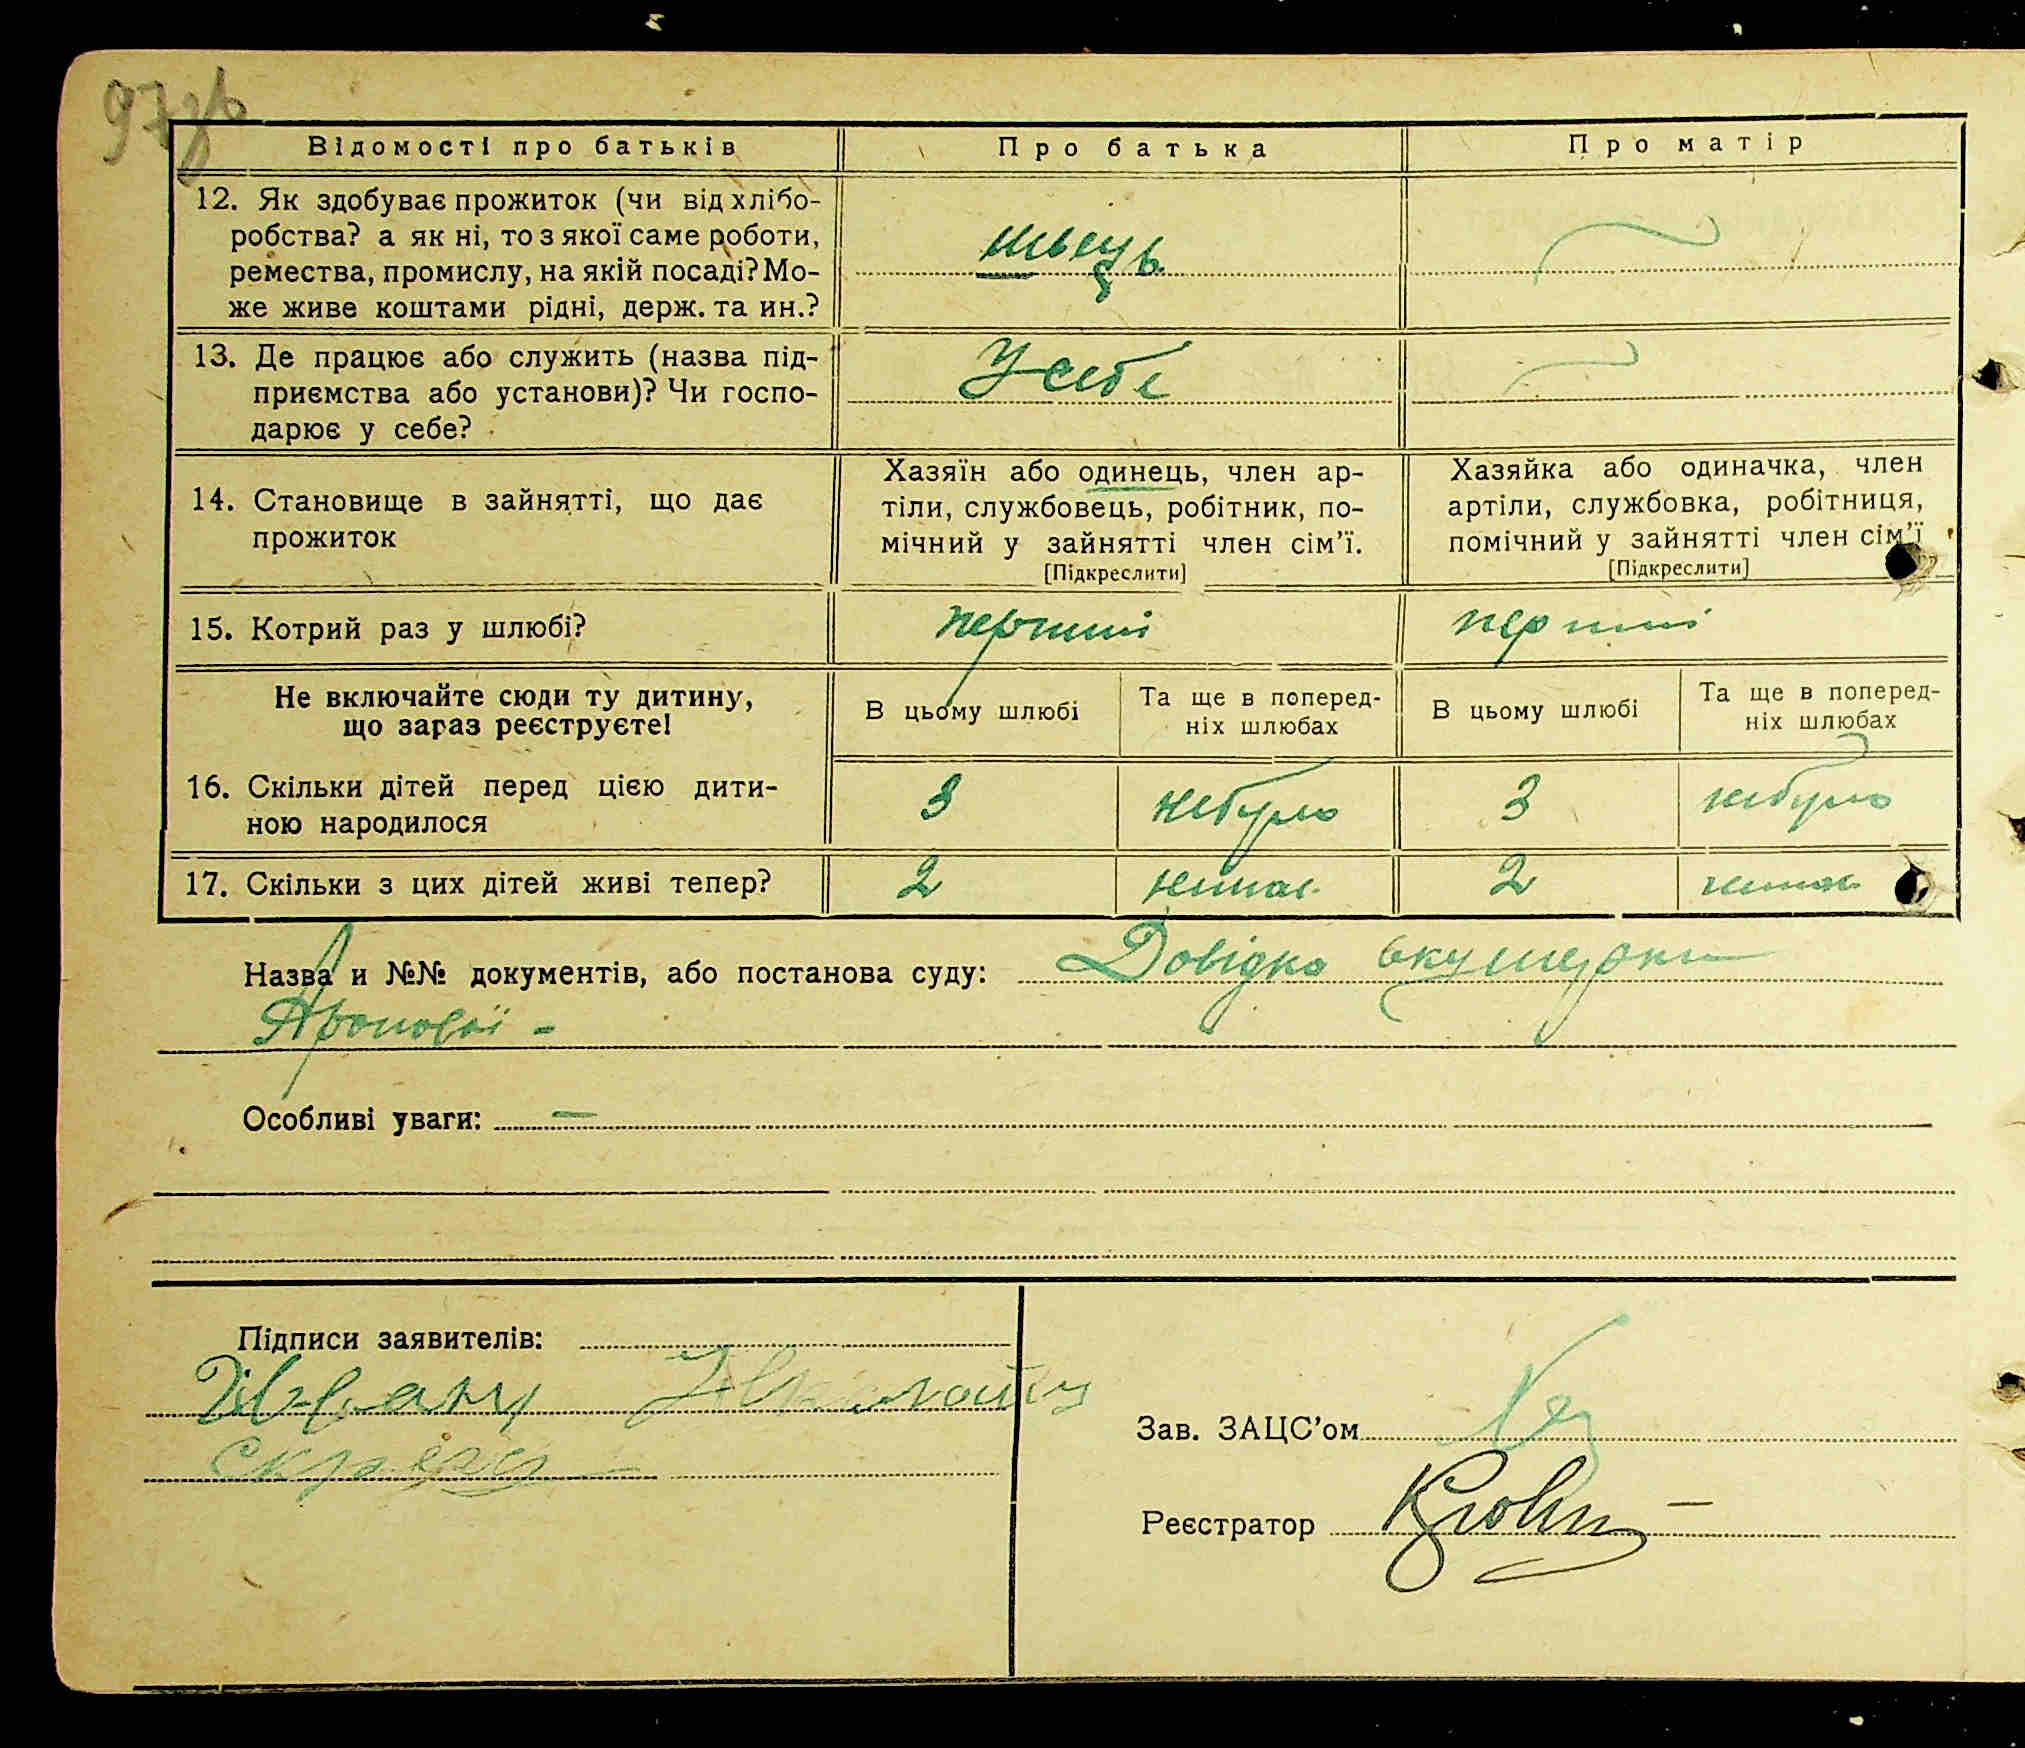 97зв
Відомості про батьків
Про батька
Про матір
12. Як здобуває прожиток (чи від хлібо-
робства? а як ні, то з якої саме роботи,
ремества, промислу, на якій посаді? Мо-
же живе коштами рідні, держ. та ин.?
швець
13. Де працює або служить (назва під-
приємства або установи)? Чи госпо-
дарює у себе?
У себе
14. Становище в зайнятті, що дає
прожиток
Хазяїн або одинець, член ар-
тіли, службовець, робітник, по-
мічний у зайнятті член сім'ї.
[Підкреслити]
Хазяйка або одиначка, член
артіли, службовка, робітниця,
помічний у зайнятті член сім'ї
[Підкреслити]
15. Котрий раз у шлюбі?
перший
перший
Не включайте сюди ту дитину,
що зараз реєструєте!
В цьому шлюбі
Та ще в поперед-
ніх шлюбах
В цьому шлюбі
Та ще в поперед-
ніх шлюбах
16. Скільки дітей перед цією дити-
ною народилося
3
небуло
3
небуло
17. Скільки з цих дітей живі тепер?
2
немає
2
немає
Назва и №№ документів, або постанова суду: Довідка акушерки
Особливі уваги: —
Підписи заявителів:
Зав. ЗАЦС'ом
Реєстратор